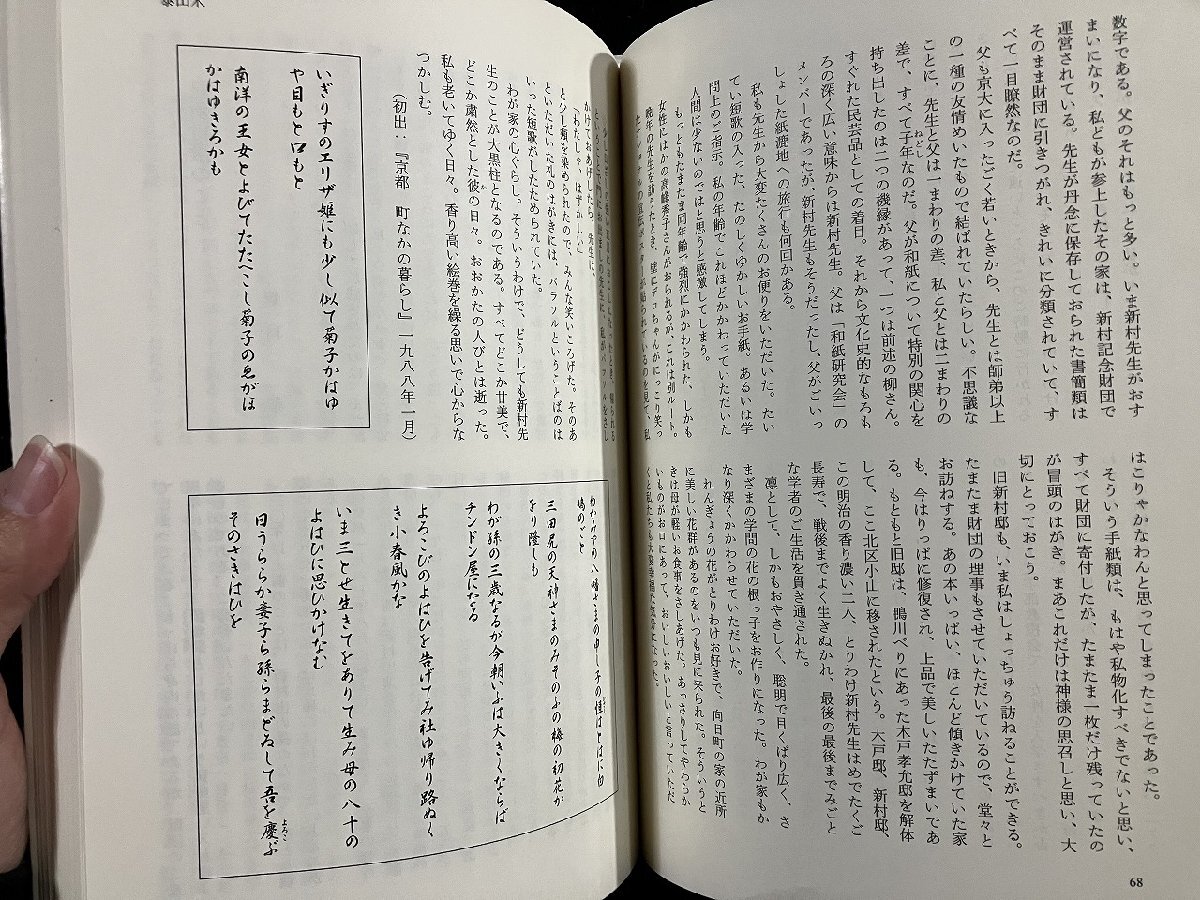 数字である。父のそれはもっと多い。いま新村先生がおす
まいになり、私どもが参上したその家は、新村記念財団で
運営されている。先生が丹念に保存しておられた書簡類は
そのまま財団に引きつがれ、きれいに分類されていて、す
べて一目瞭然なのだ。
父も京大に入ったごく若いときから、先生とは師弟以上
の一種の友情めいたもので結ばれていたらしい。不思議な
ことに、先生と父は一まわりの差、私と父とは二まわりの
差で、すべて子年なのだ。父が和紙について特別の関心を
ねどし
持ち出したのは二つの機縁があって、一つは前述の柳さん。
すぐれた民芸品としての着目。それから文化史的なもろも
ろの深く広い意味からは新村先生。父は「和紙研究会」の
メンバーであったが、新村先生もそうだったし、父がごいっ
しょした紙漉地への旅行も何回かある。
私も先生から大変たくさんのお便りをいただいた。たい
てい短歌の入った、たのしくゆかしいお手紙。あるいは学
問上のご指示。私の年齢でこれほどかかわっていただいた
人間は少ないのではと思うと感激してしまう。
もっともたまたま同年齢で強烈にかかわられた、しかも
女性にはかの高峰秀子さんがおられるが、これは別ルート。
晩年の先生を訪ったとき、壁にデコちゃんがにっこり笑っ
はこりゃかなわんと思ってしまったことであった。
そういう手紙類は、もはや私物化すべきでないと思い、
すべて財団に寄付したが、たまたま一枚だけ残っていたの
が冒頭のはがき。まあこれだけは神様の思召しと思い、大
切にとっておこう。
旧新村邸も、いま私はしょっちゅう訪ねることができる。
たまたま財団の理事もさせていただいているので、堂々と
お訪ねする。あの本いっぱい、ほとんど傾きかけていた家
も、今はりっぱに修復され、上品で美しいたたずまいであ
る。もともと旧邸は、鴨川べりにあった木戸孝允邸を解体
して、ここ北区小山に移されたという。木戸邸、新村邸、
この明治の香り濃い二人、とりわけ新村先生はめでたくご
長寿で、戦後までよく生きぬかれ、最後の最後までみごと
な学者のご生活を貫き通された。
凛として、しかもおやさしく、聡明で目くばり広く、さ
まざまの学問の花の根っ子をお作りになった。わが家もか
なり深くかかわらせていただいた。
れんぎょうの花がとりわけお好きで、向日町の家の近所
に美しい花群があるのをいつも見に来られた。そういうと
きは母が軽いお食事をさしあげた。あっさりしてやわらか
いものがお口にあって、おいしいおいしいと言っていただ
68
かけておあげしたら、先生に、
「わたしゃ、はずかしい」
と少々頬を染められたので、みんな笑いころげた。そのあ
といただいた礼のはがきには、パラソルということばの
いった短歌がしたためられていた。
わが家の心ぐらし。そういうわけで、どうしても新村先
生のことが大黒柱となるのである。すべてどこか甘美で、
どこか粛然とした彼の日々。おおかたの人びとは逝った。
か
私も老いてゆく日々。香り高い絵巻を繰る思いで心からな
つかしむ。
(初出:『京都 町なかの暮らし』一九八八年一月)
いぎりすのエリザ姫にも少し似て菊子かはゆ
や目もと口もと
南洋の王女とよびてたたへこし菊子の急がほ
かはゆきろかも
鳩のごと
三田尻の天神さまのみそのふの梅の初花が
をり隆しも
わが孫の三歳なるが今朝いふは大きくならば
チンドン屋になる
よろこびのよはひを告げてみ社ゆ帰り路ぬく
き小春風かな
いま三とせ生きてをありて生み母の八十の
よはひに思ひかけなむ
日うららか妻子ら孫らまどゐして吾を慶ぶ
よろこ
そのさきはひを